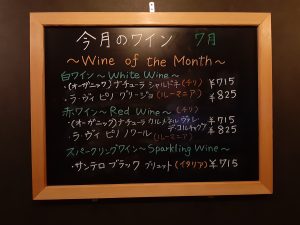 今月のワイン 7月
～Wine of the Month～
白ワイン～White Wine～
・(オーガニック)ナチューラ シャルドネ(チリ) ￥715
・ラ・ヴィ ピノ グリージョ(ルーマニア) ￥825
赤ワイン～Red Wine～(チリ)
・(オーガニック)ナチューラ カルメネル ￥715
・ラ・ヴィ ピノ ノワール(ルーマニア) ￥825
スパークリングワイン～Sparkling Wine～
・サンテロ ブラック ブリュット(イタリア) ￥715